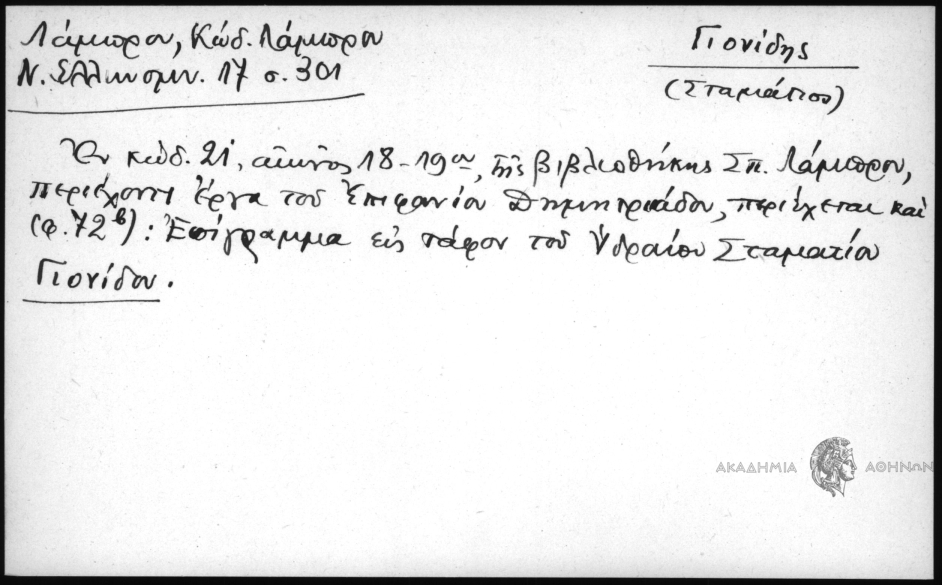 Λάμπρου, Κώδ. Λάμπρου
Ν. Ἑλληνομν. 17 σ. 301
Γιονίδης
(Σταμάτιος)
Ἐν κώδ. 21, αἰῶνος 18-19ου, τῆς βιβλιοθήκης Σπ. Λάμπρου,
περιέχοντι ἔργα τοῦ Ἐπιφανίου Δημητριάδου, περιέχεται καὶ
(φ. 72β): Ἐπίγραμμα εἰς τάφον τοῦ Ὑδραίου Σταματίου
Γιονίδου.
ΑΚΑΔΗΜΙΑ ΑΘΗΝΩΝ